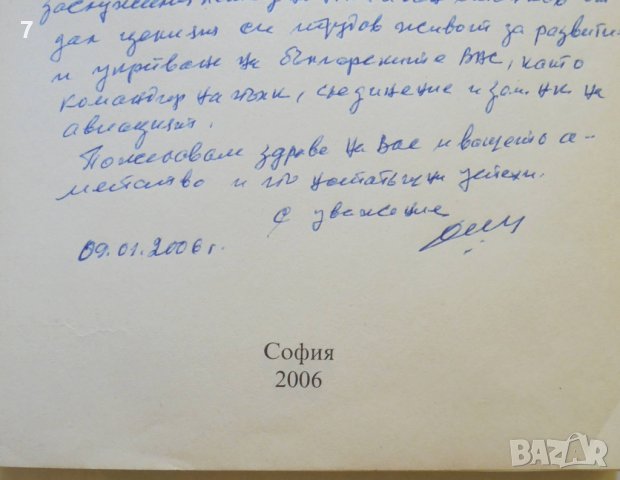 7
дал целия си трудов живот за развити-
и укрепване на българските ВВС, като
командир на полк, съединение и зам. НК на
авиацията.
Пожелавам здраве на Вас и вашето се-
мейство и по нататъшни успехи.
С уважение
09.01.2006 г.
София
2006
BAZAR